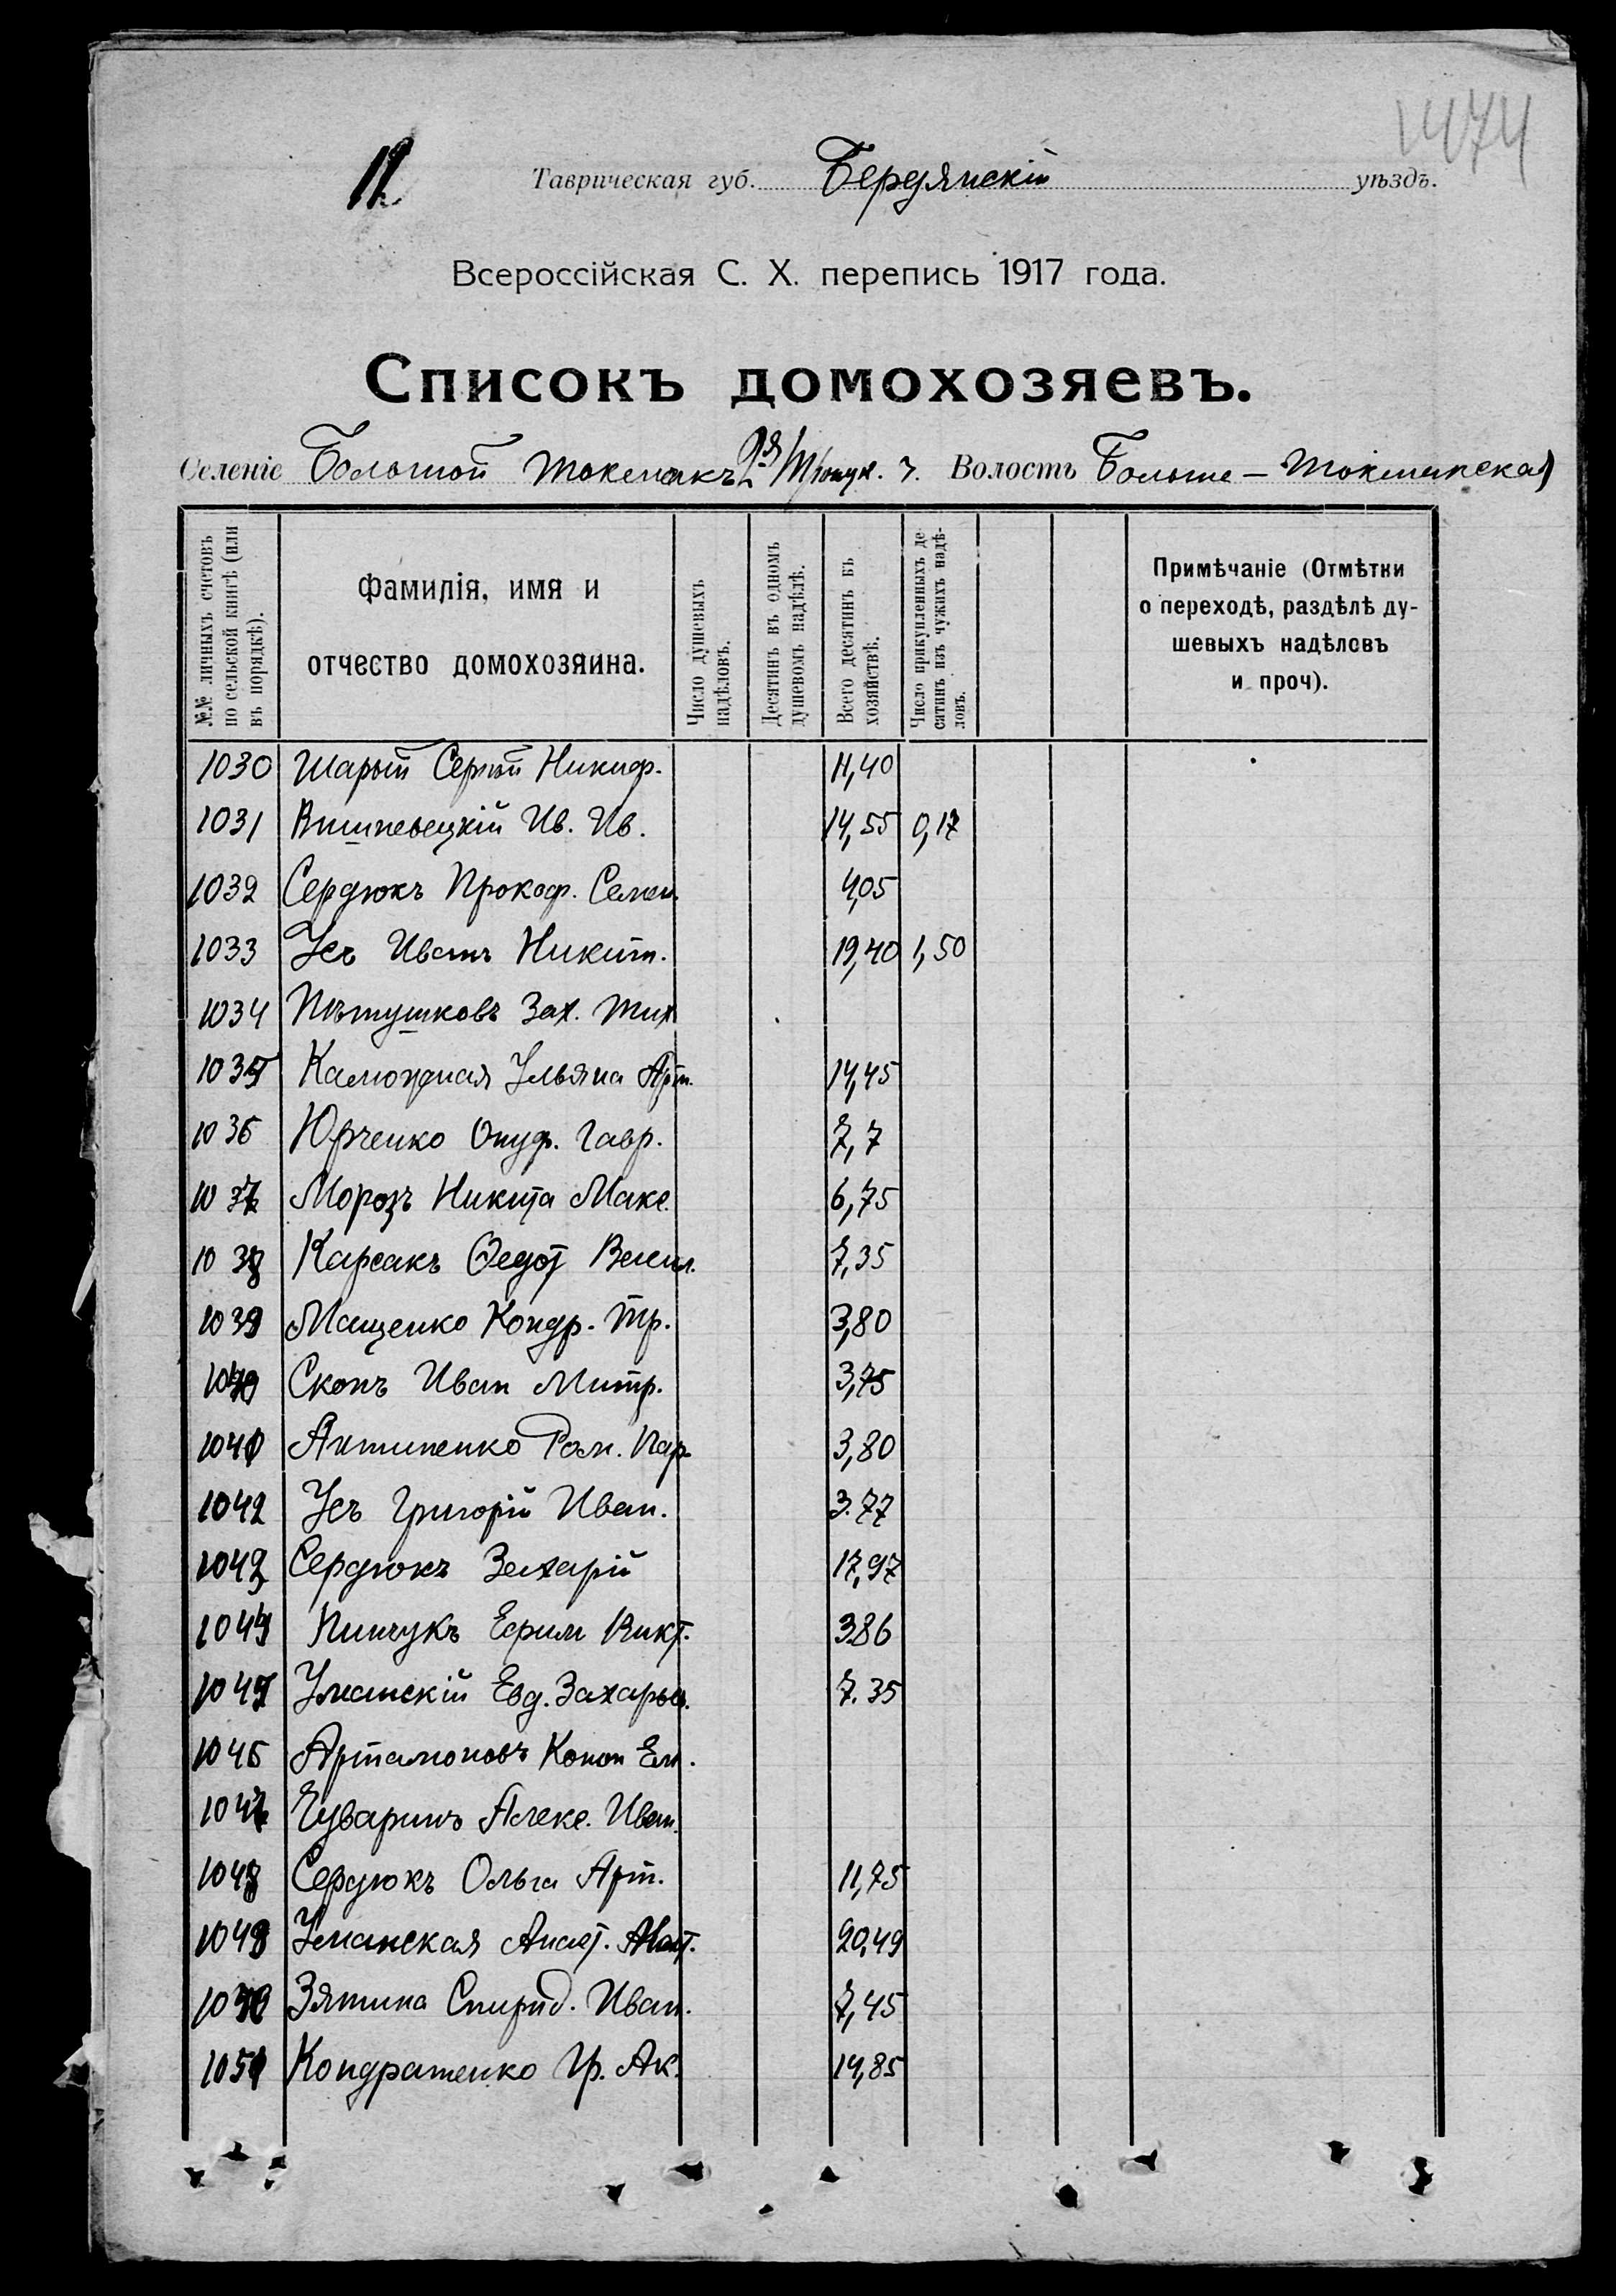 1474
12 Таврическая губ. Бердянскій уѣздъ.
Всероссійская С. Х. перепись 1917 года.
Списокъ домохозяевъ.
Селеніе Большой Токмакъ 2я Волость Больше-Токмакская
№№ личныхъ счетовъ по сельской книгѣ (или въ порядкѣ).
Фамилія, имя и отчество домохозяина.
Число душевыхъ надѣловъ.
Десятинъ въ одномъ душевомъ надѣлѣ.
Всего десятинъ въ хозяйствѣ.
Число прикупленныхъ десятинъ изъ чужихъ надѣловъ.
Примѣчаніе (Отмѣтки
о переходѣ, раздѣлѣ ду-
шевыхъ надѣловъ
и проч).
1030 Шарый Сергій Никиф. 11,40
1031 Вишневецкій Ив. Ив. 14,55 0,17
1032 Сердюкъ Прокоф. Семен. 4,05
1033 Усъ Иванъ Никит. 19,40 1,50
1034 Пѣтушковъ Зах. Тих
1035 Калюжная Ульяна Арт. 14,45
1036 Юрченко Онуф. Гавр. 7,7
1037 Морозъ Никита Макс. 6,75
1038 Карсакъ Ѳедот Васил. 7,35
1039 Мащенко Кондр. Тр. 3,80
1040 Скопъ Иван Митр. 3,75
1041 Антипенко Ром. Пар. 3,80
1042 Усъ Григорій Иван. 3.77
1043 Сердюкъ Захарій 17,97
1044 Пинчукъ Ефим Викт. 3.86
1045 Уманскій Евд. Захарьев. 7.35
1046 Артамоновъ Конон Ем.
1047 Гуваринъ Алекс. Иван.
1048 Сердюкъ Ольга Арт. 11,75
1049 Уманская Анаст. 20,49
1050 Зятина Спирид. Иван. 7,45
1051 Кондратенко Гр. Ак. 14,85